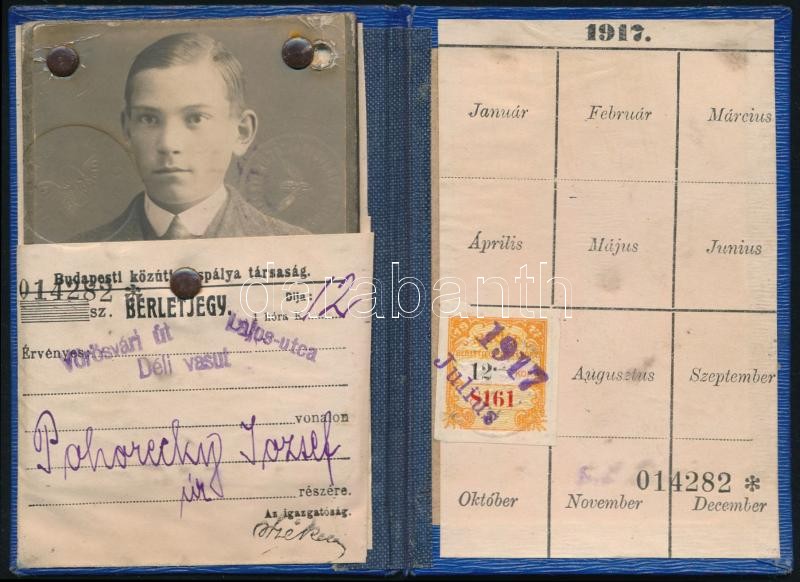 Budapesti közúti spálya társaság.
014282 *
sz. BÉRLETJEGY. Díja:
1 hóra K 12
Érvényes
Vörösvári út Lajos-utca
Déli vasut
vonalon
Pohorecky Jozsef
úr részére.
Az igazgatóság.
1917.
Január Február Március
Április Május Junius
1917
BÉRLETJEGY
12
8161
Julius
Augusztus Szeptember
014282 *
Október November December
darabanth